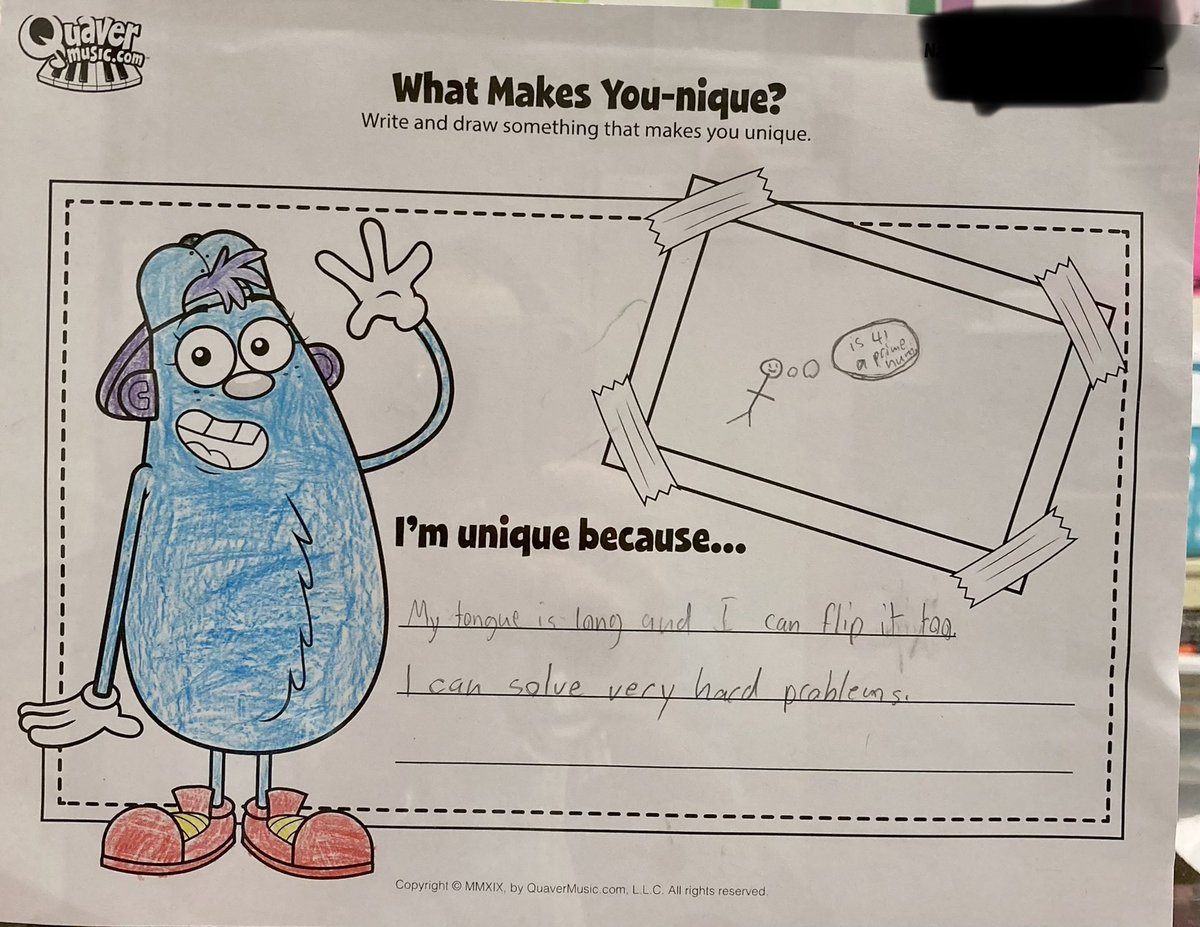 Quaver
music.com
What Makes You-nique?
Write and draw something that makes you unique.
is 41
a prime
num
I'm unique because...
My tongue is long and I can flip it too.
I can solve very hard problems.
Copyright © MMXIX, by QuaverMusic.com, L.L.C. All rights reserved.